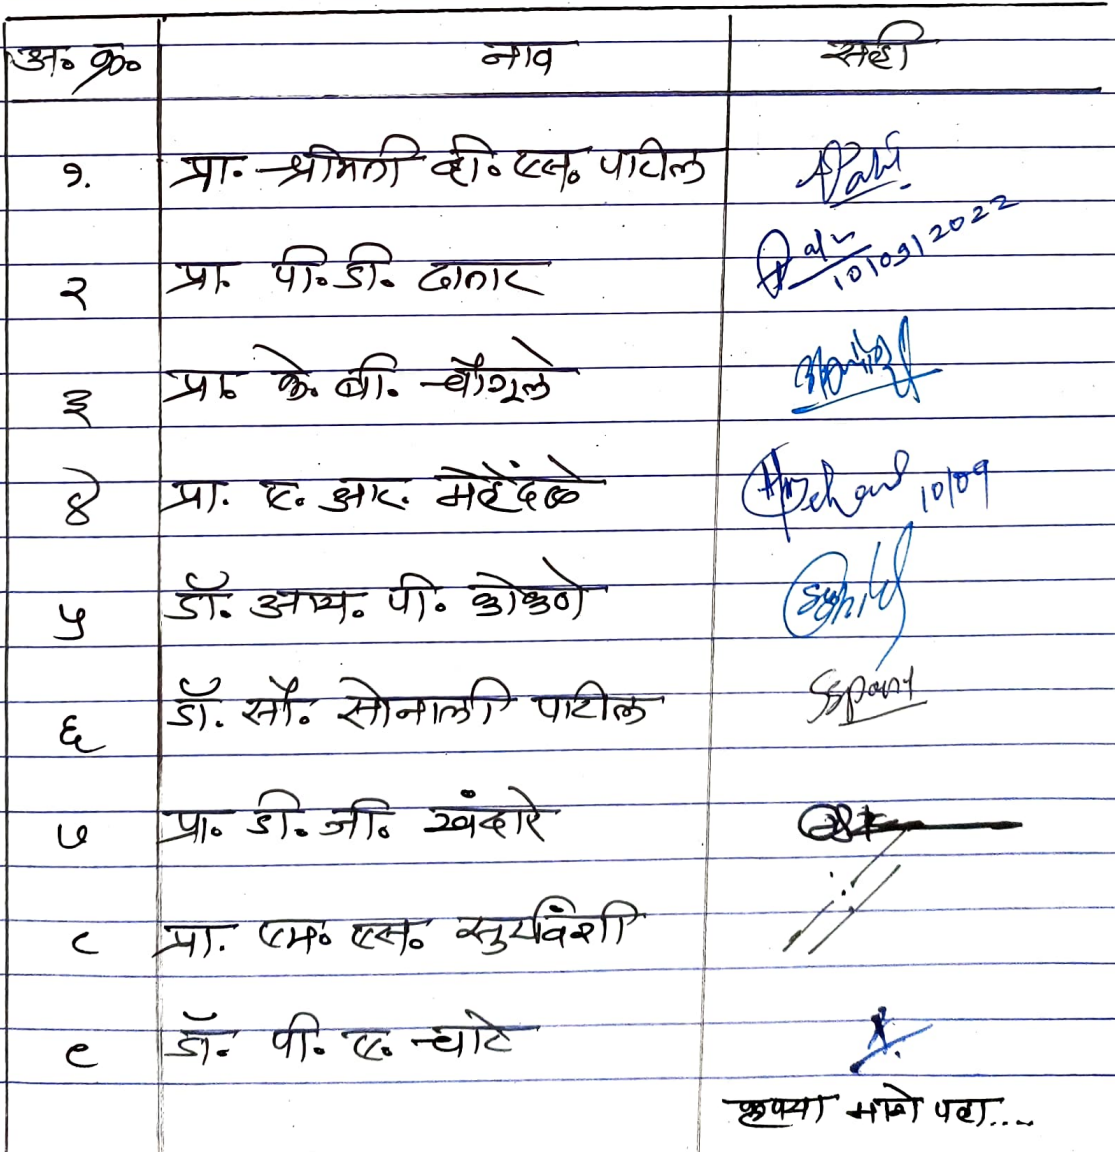 अ. क्र. नाव सही
१. प्रा. श्रीमती व्ही. एस. पाटील
२ प्रा. पी. डी. दातार 10/09/2022
३ प्रा. के. बी. चौगूले
४ प्रा. ए. आर. मेहेंदळे 10/09
५ डॉ. आय. पी. कोकणे
६ डॉ. सौ. सोनाली पाटील
७ प्रा. डी. जी. खंदारे
८ प्रा. एम. एस. सुर्यवंशी
९ डॉ. पी. ए. चाटे
कृपया मागे पहा....